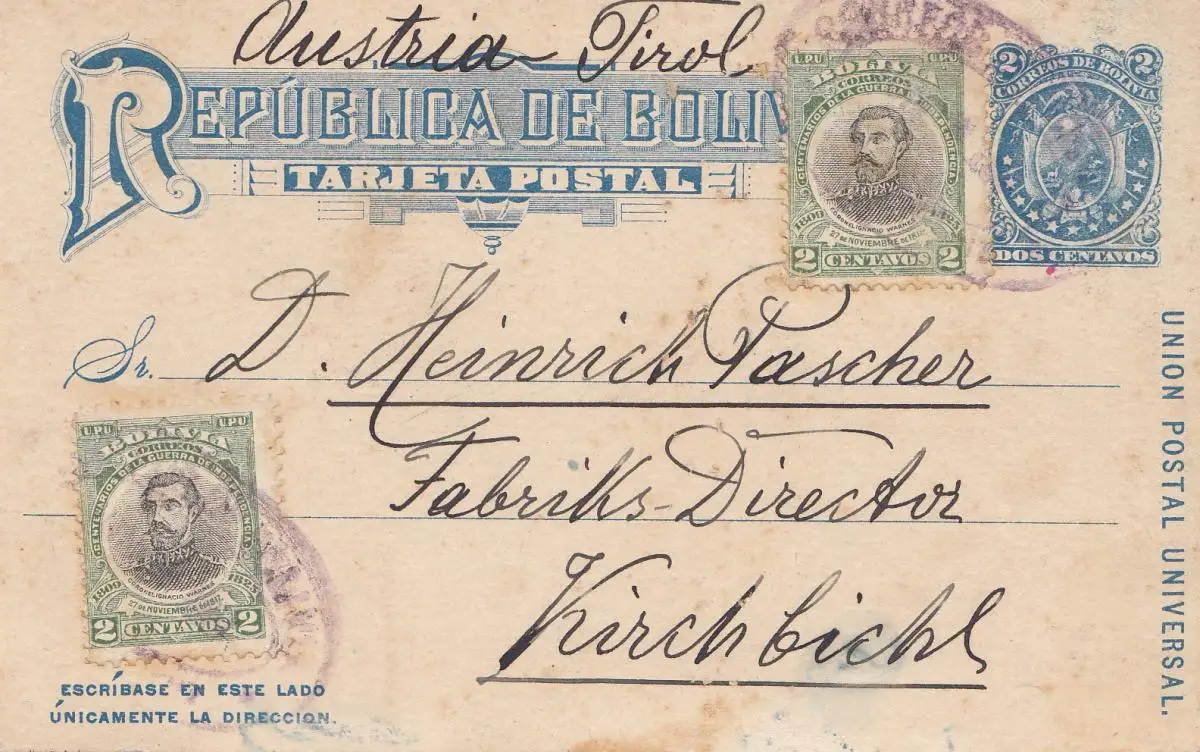 Austria Tirol
REPÚBLICA DE BOLIV
TARJETA POSTAL
UPU UPU
BOLIVIA
CORREOS
CENTENARIOS DE LA GUERRA DE INDEPENDENCIA
CORONEL IGNACIO WARNES
1809 1825
27 DE NOVIEMBRE DE 1812
2 CENTAVOS 2
2 2
CORREOS DE BOLIVIA
DOS CENTAVOS
Sr. D. Heinrich Pascher
Fabriks-Director
Kirchbichl
UPU UPU
BOLIVIA
CORREOS
CENTENARIOS DE LA GUERRA DE INDEPENDENCIA
CORONEL IGNACIO WARNES
1809 1825
27 DE NOVIEMBRE DE 1812
2 CENTAVOS 2
ESCRÍBASE EN ESTE LADO
ÚNICAMENTE LA DIRECCION.
UNION POSTAL UNIVERSAL.